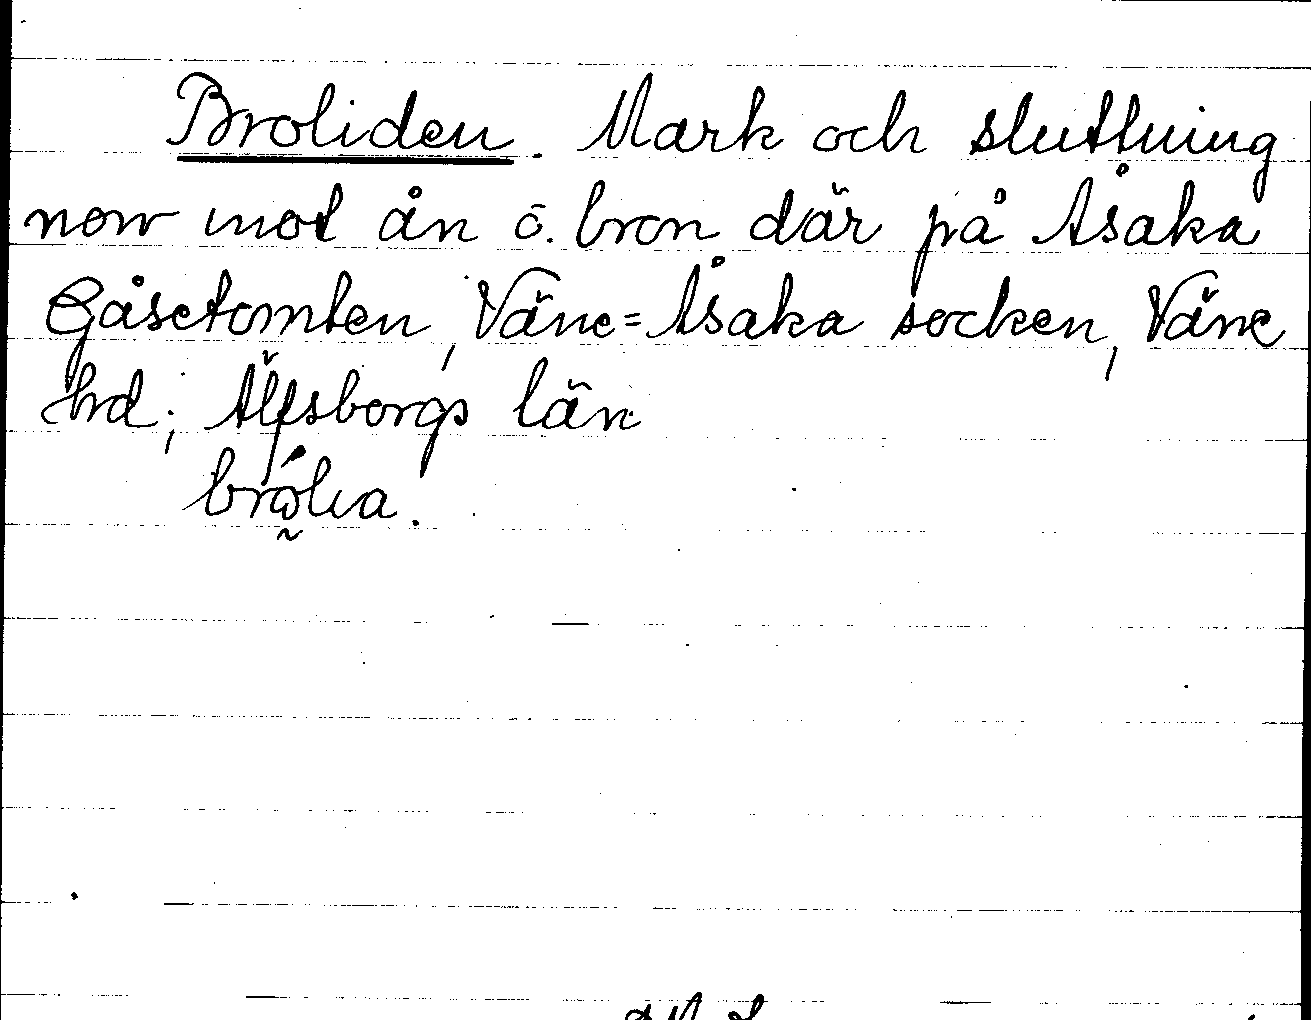 Broliden. Mark och sluttning
norr mot ån ö. bron där på Åsaka
Gåsetomten, Väne=Åsaka socken, Väne
hrd; Älfsborgs län